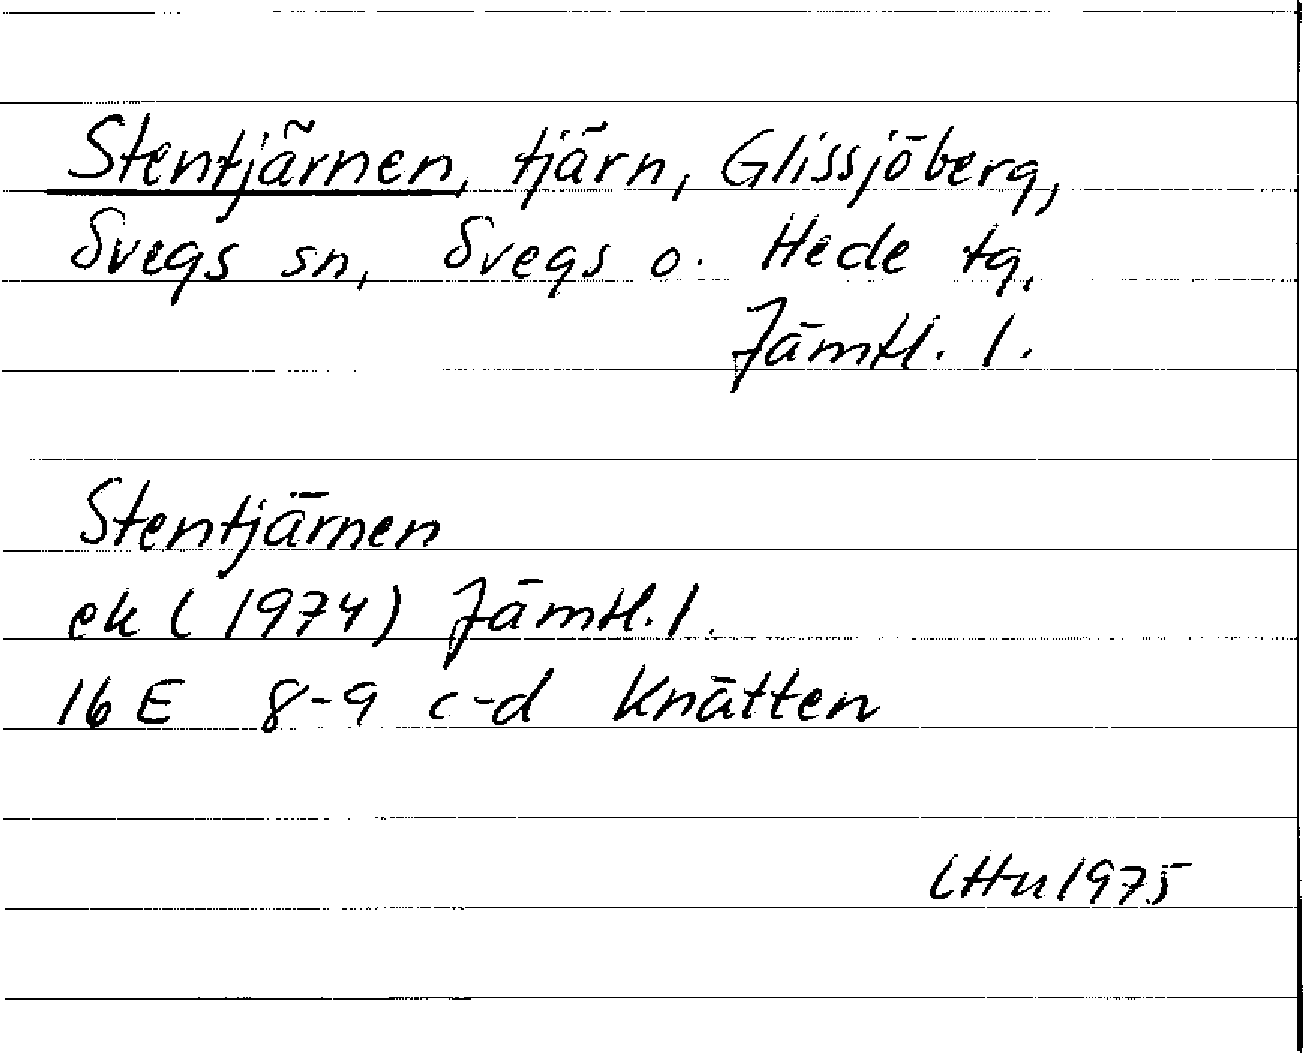 Stentjärnen, tjärn, Glissjöberg,
Svegs sn, Svegs o. Hede tg,
Jämtl. l.
Stentjärnen
ek (1974) Jämtl. l.
16 E 8-9 c-d Knätten
LHu 1975